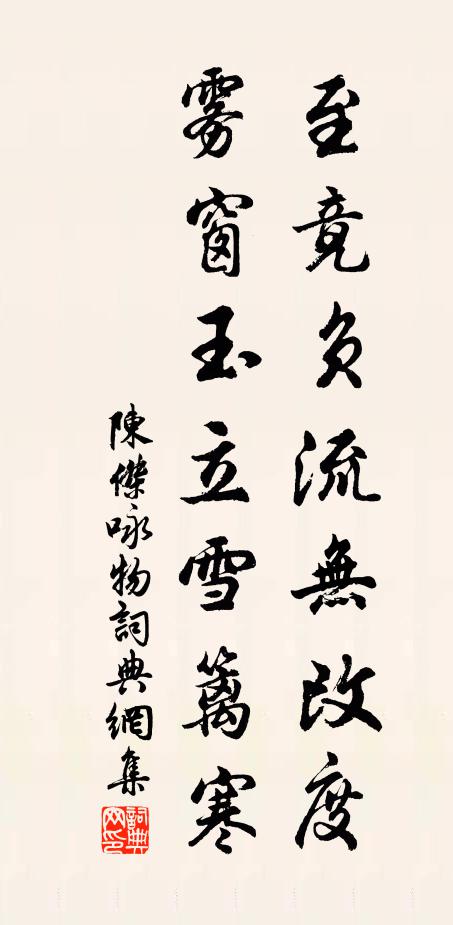 至竟負流無改度
雾窗玉立雪篱寒
陳傑咏物詞典網集
詞典网印